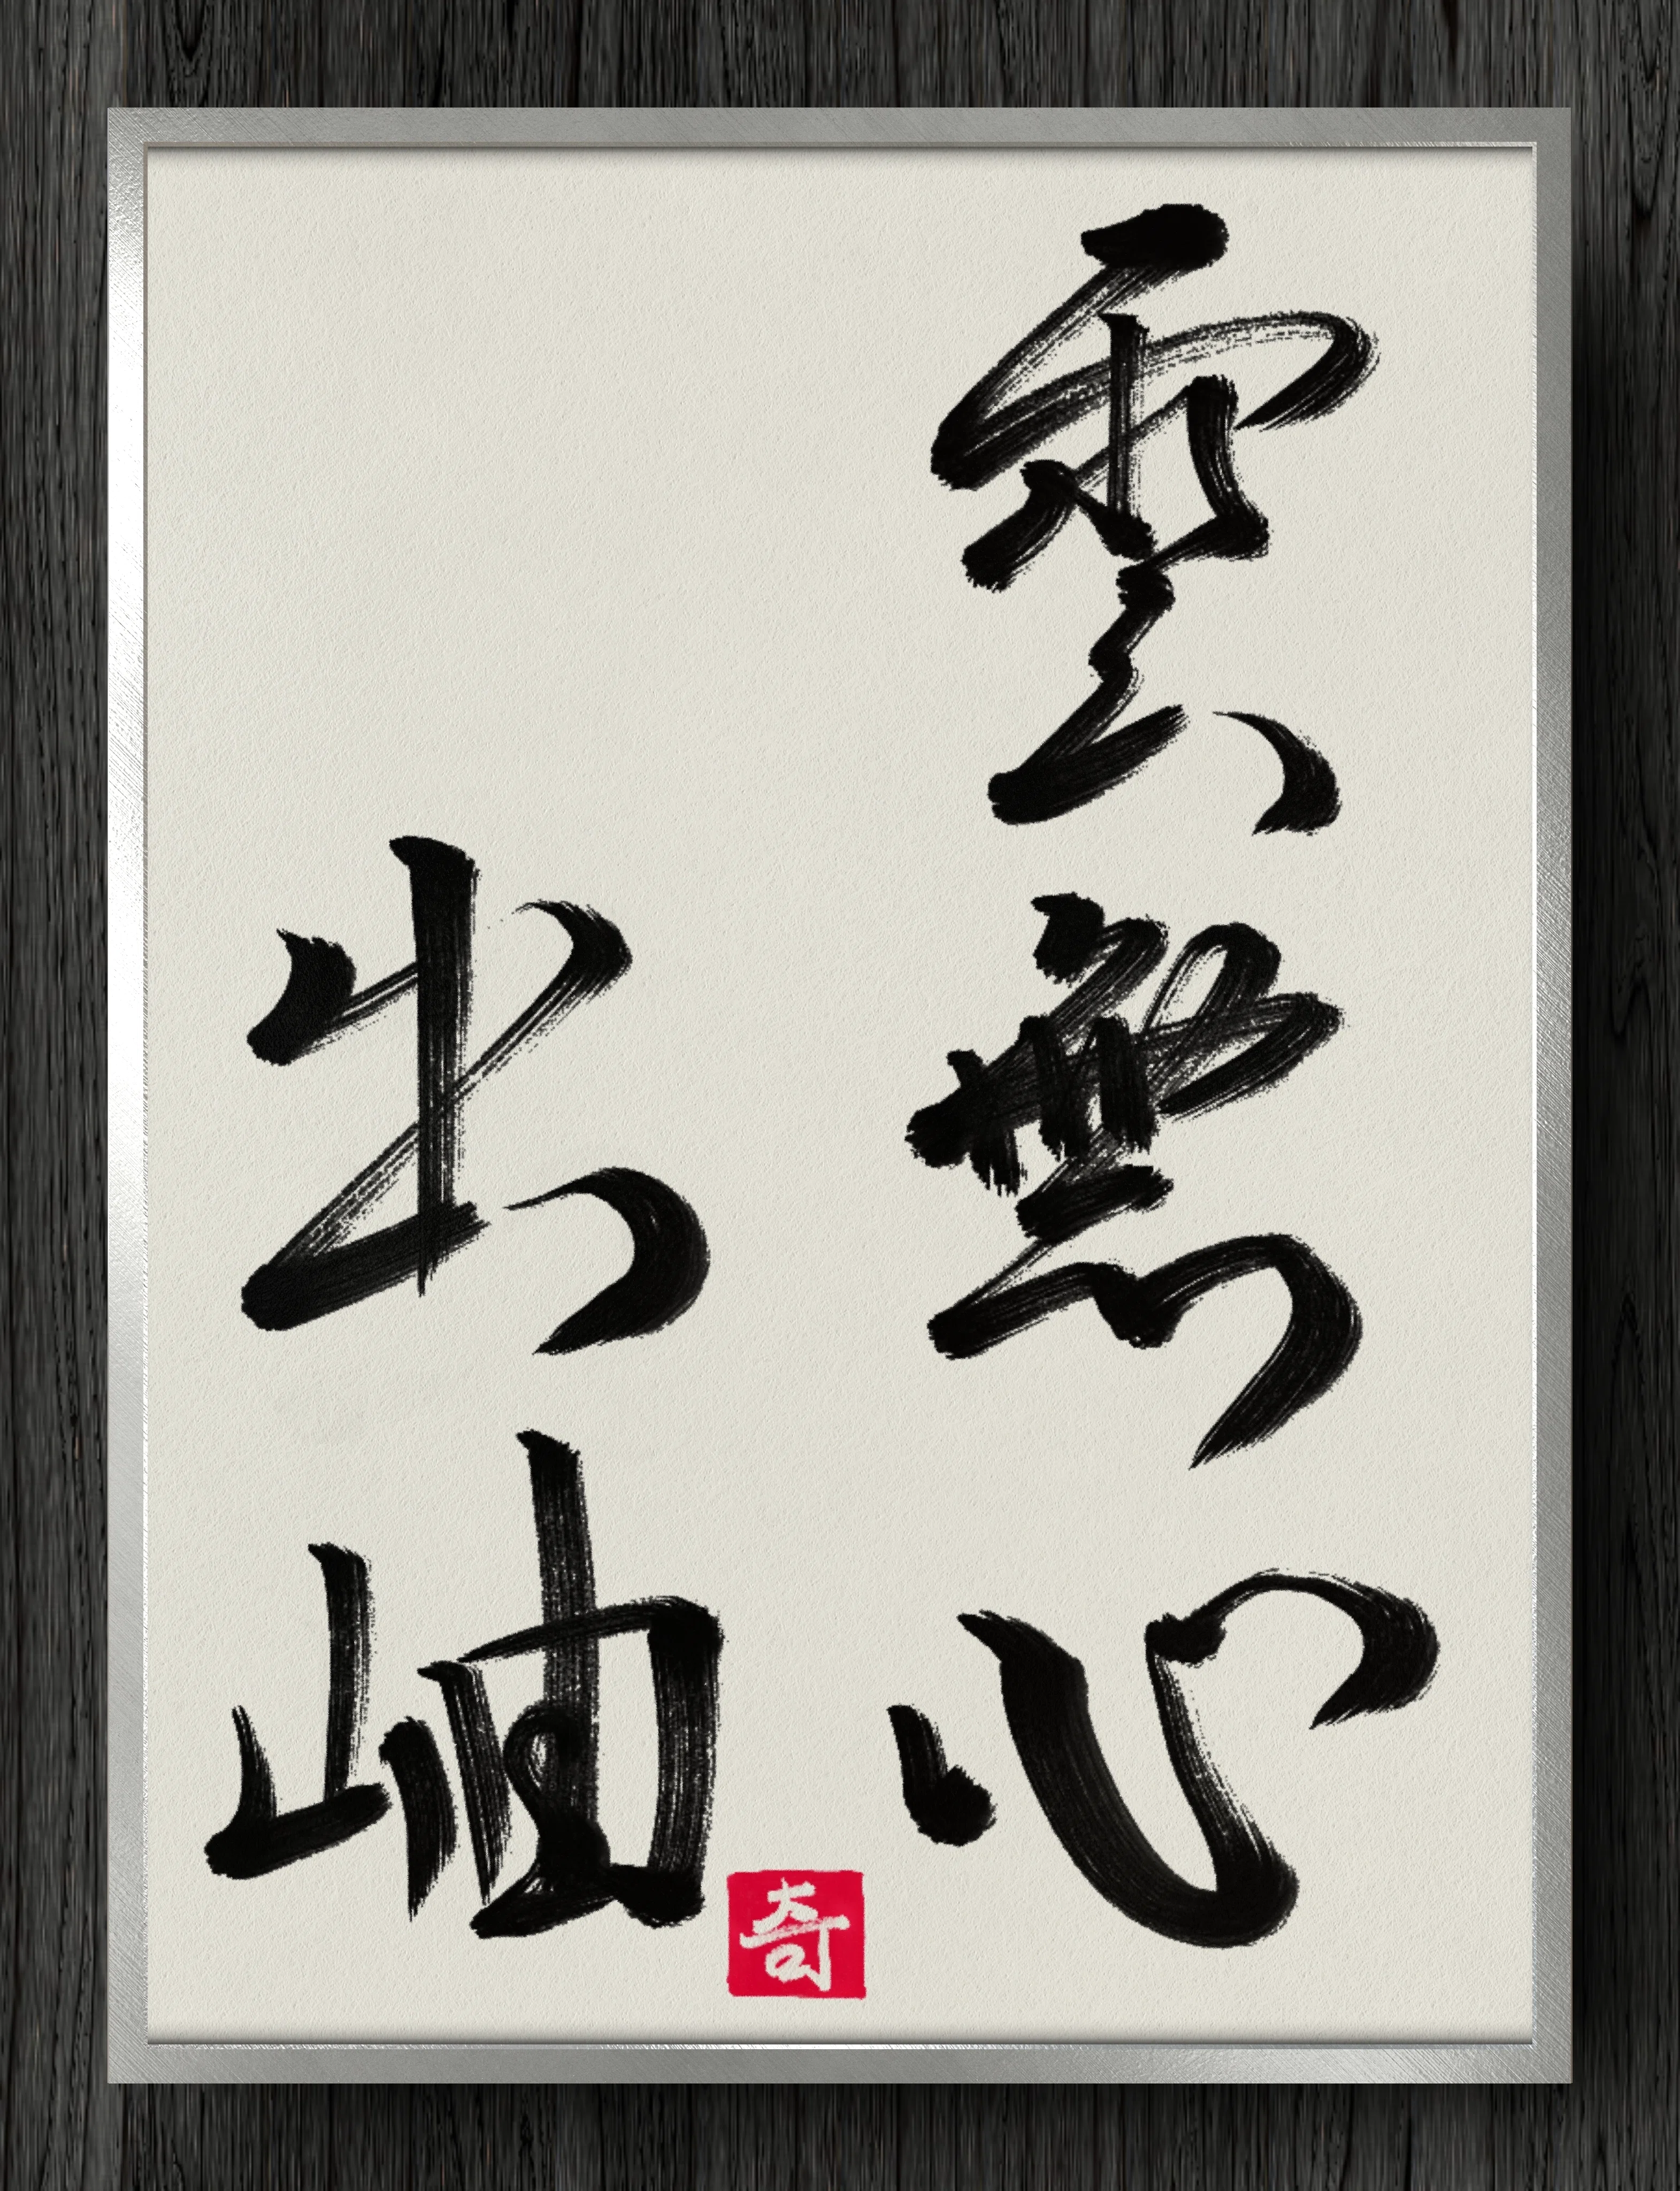 雲無心
出岫
奇